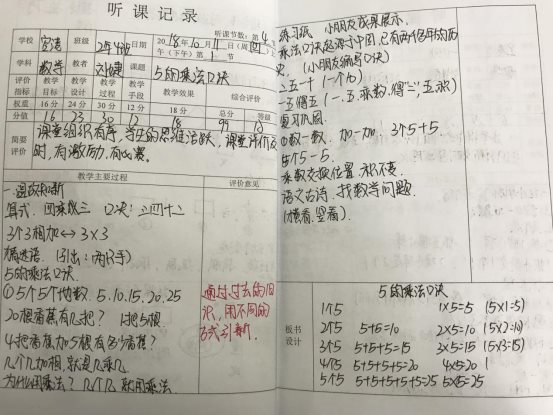 听课记录
听课节数：第4节
学校 班级 2年4班 日期 2018年10月11日（周四）
（下午）第1节
学科 数学 教者 课题 5的乘法口诀
评价指标 教学目标 教学设计 教学过程 教学手段 教学效果 综合评价
权重 16分 24分 30分 12分 18分 总分 等级
分值 16 23 30 12 18 99
简要评价 课堂组织有序，学生的思维活跃，课堂评价及
时，有激励，有比赛。
教学主要过程 评价意见
一、温故知新
算式 口诀：二四十二
3个3相加↔3×3
猜谜语（引出：两只手）
5的乘法口诀
①5个5个地数 5、10、15、20、25
20根香蕉有几把？ 1把5根
4把香蕉加5根有多少香蕉？
几个几加相，就是几乘几
为什么用乘法？几个几 就用乘法
通过过去的旧
识，用不同的
方式引新。
练习纸 小朋友成果展示。
乘法口诀起源于中国，已有两个多年的历
史。（小朋友编写口诀）
二五一十（一个10）
一五得五（一、五、乘数，得“二”，五、积）
复习巩固
①数一数，加一加：3个5+5
5个5-5。
乘数交换位置，积不变
语文古诗，找数学问题
（横看，竖看）
板书设计
5的乘法口诀
1个5 1×5=5 （5×1=5）
2个5 5+5=10 2×5=10 （5×2=10）
3个5 5+5+5=15 3×5=15 （5×3=15）
4个5 5+5+5+5=20 4×5=20
5个5 5+5+5+5+5=25 5×5=25